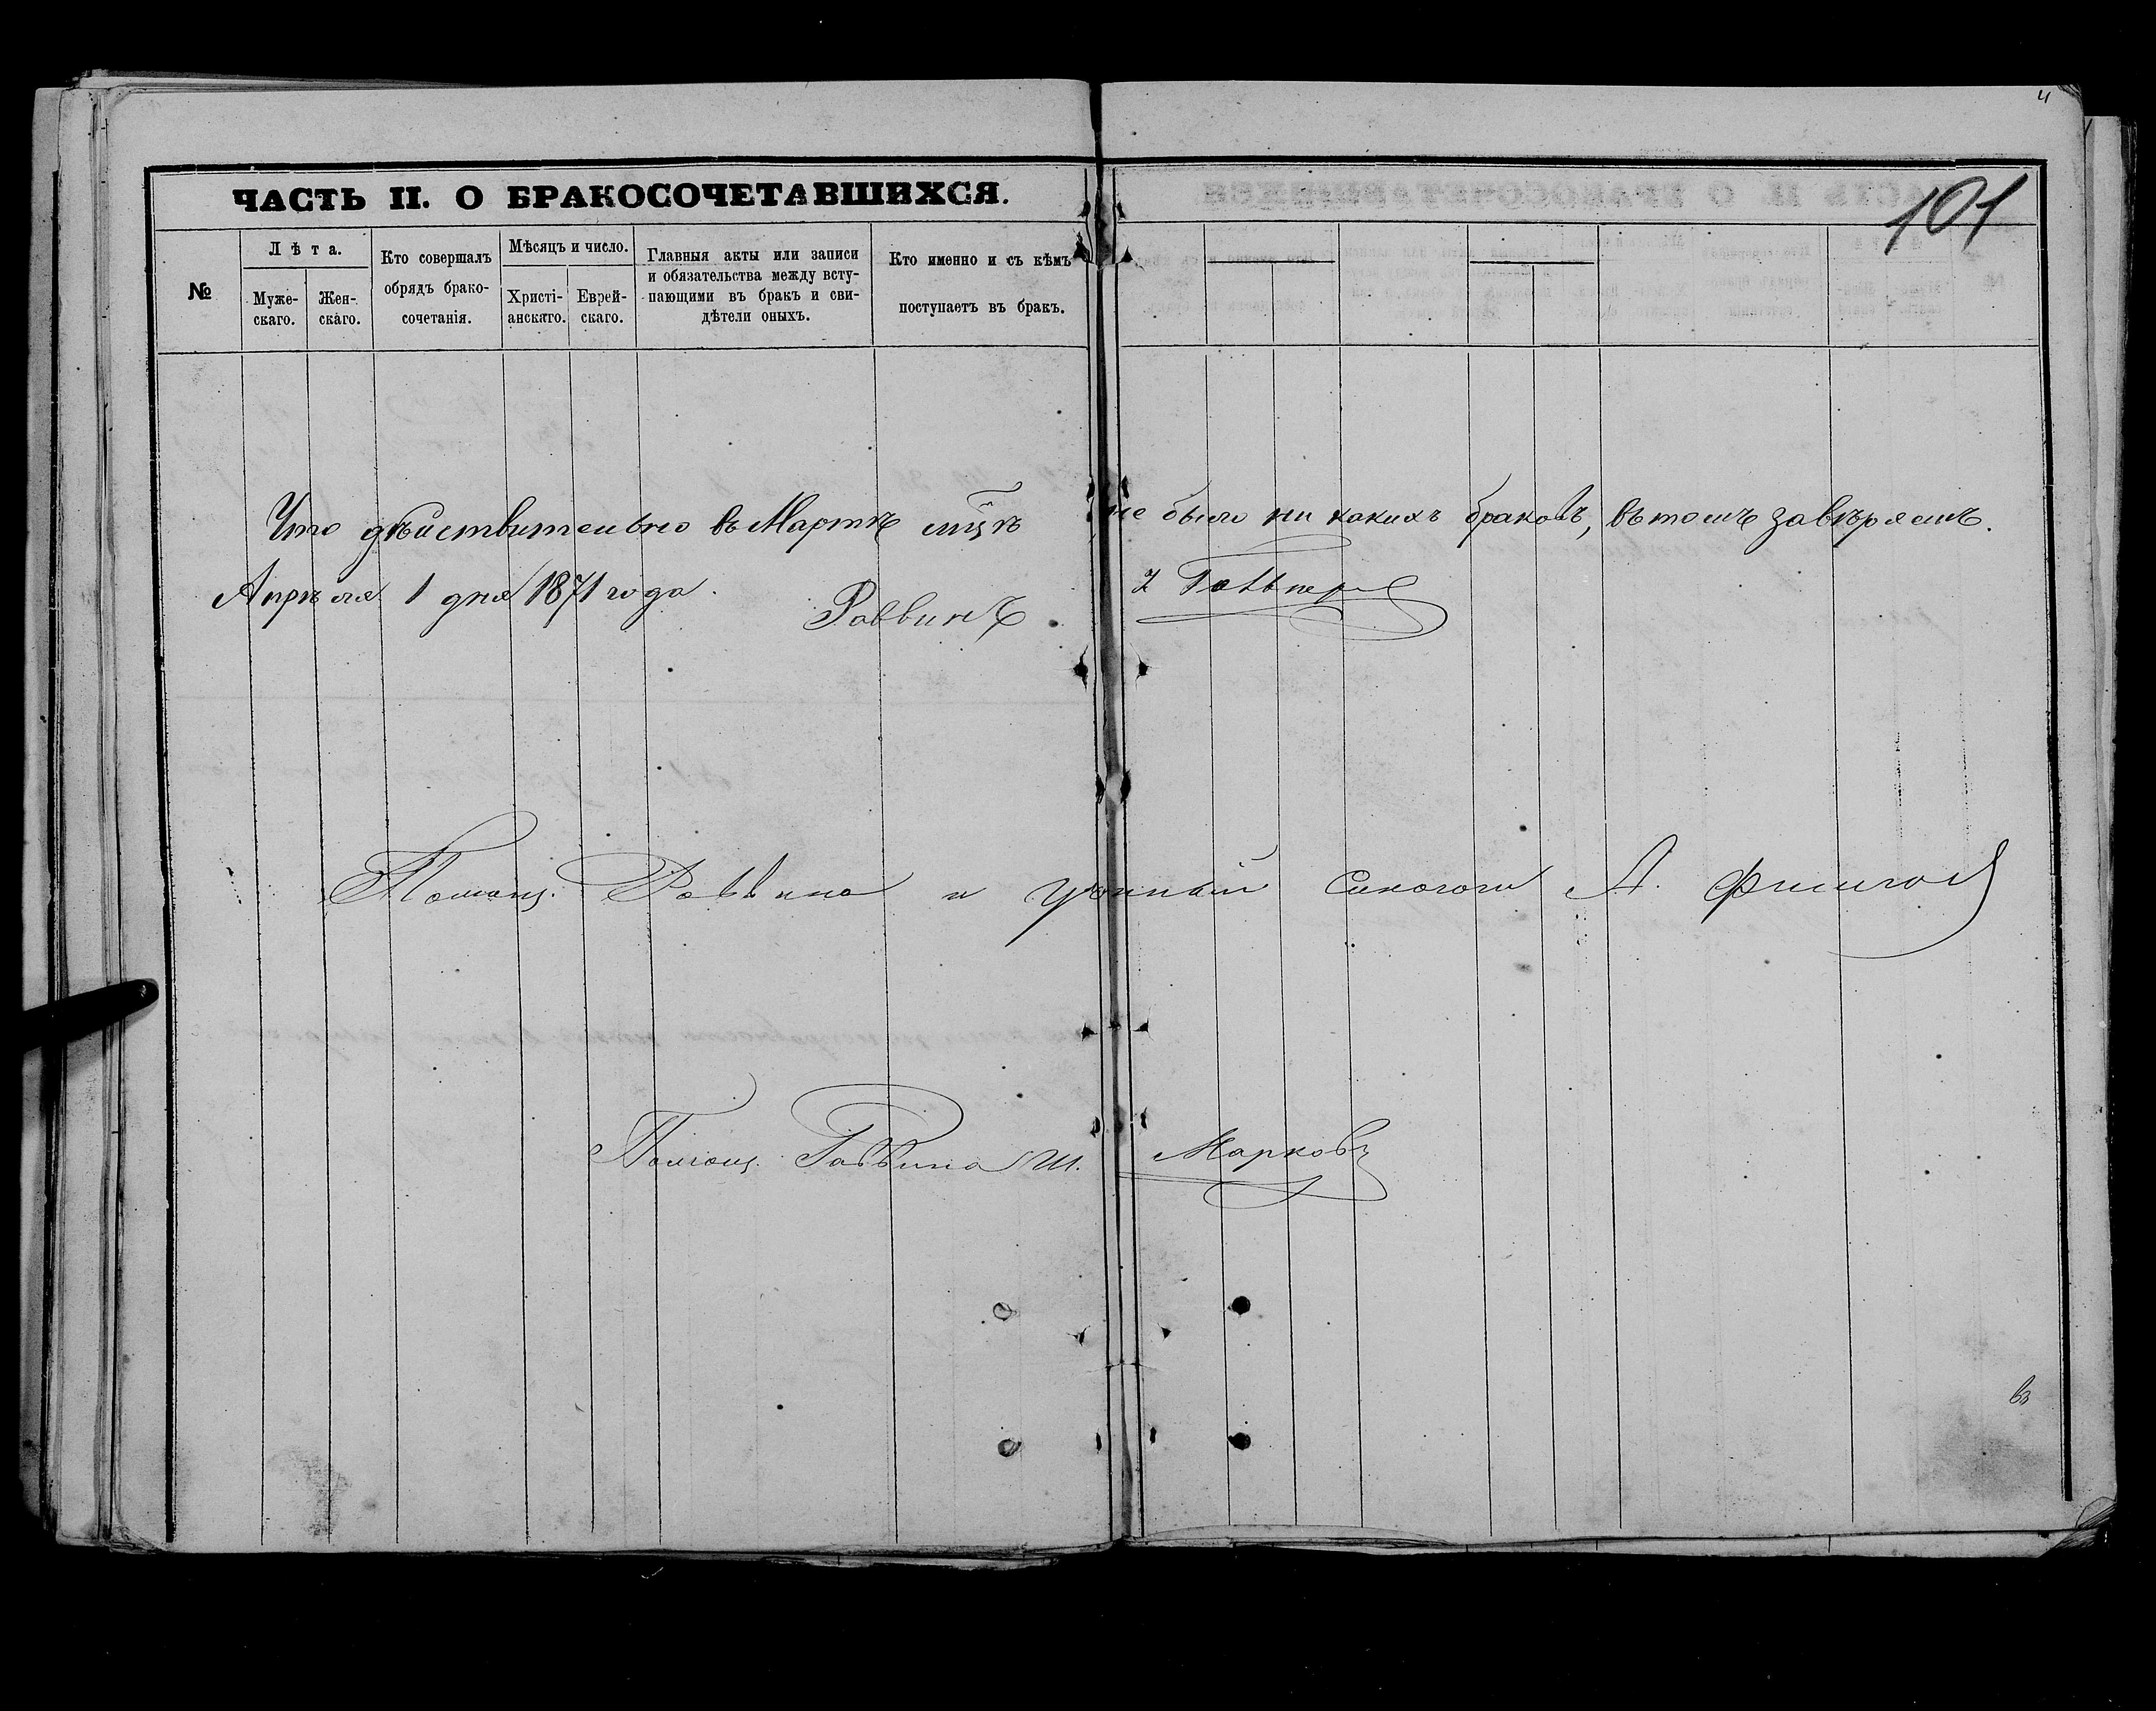 4
101
ЧАСТЬ II. О БРАКОСОЧЕТАВШИХСЯ.
№
Лѣта.
Муже-
скаго.
Жен-
скаго.
Кто совершалъ
обрядъ брако-
сочетанія.
Мѣсяцъ и число.
Христі-
анскаго.
Еврей-
скаго.
Главныя акты или записи
и обязательства между всту-
пающими въ бракъ и сви-
дѣтели оныхъ.
Кто именно и съ кѣмъ
поступаетъ въ бракъ.
Что дѣйствительно въ Мартѣ мцѣ не было ни какихъ браковъ, въ томъ завѣряемъ.
Апрѣля 1 дня 1871 года.
Раввинъ
Помощ. Раввина и Синагоги А.
Помощ. Раввина Ш. Марковъ